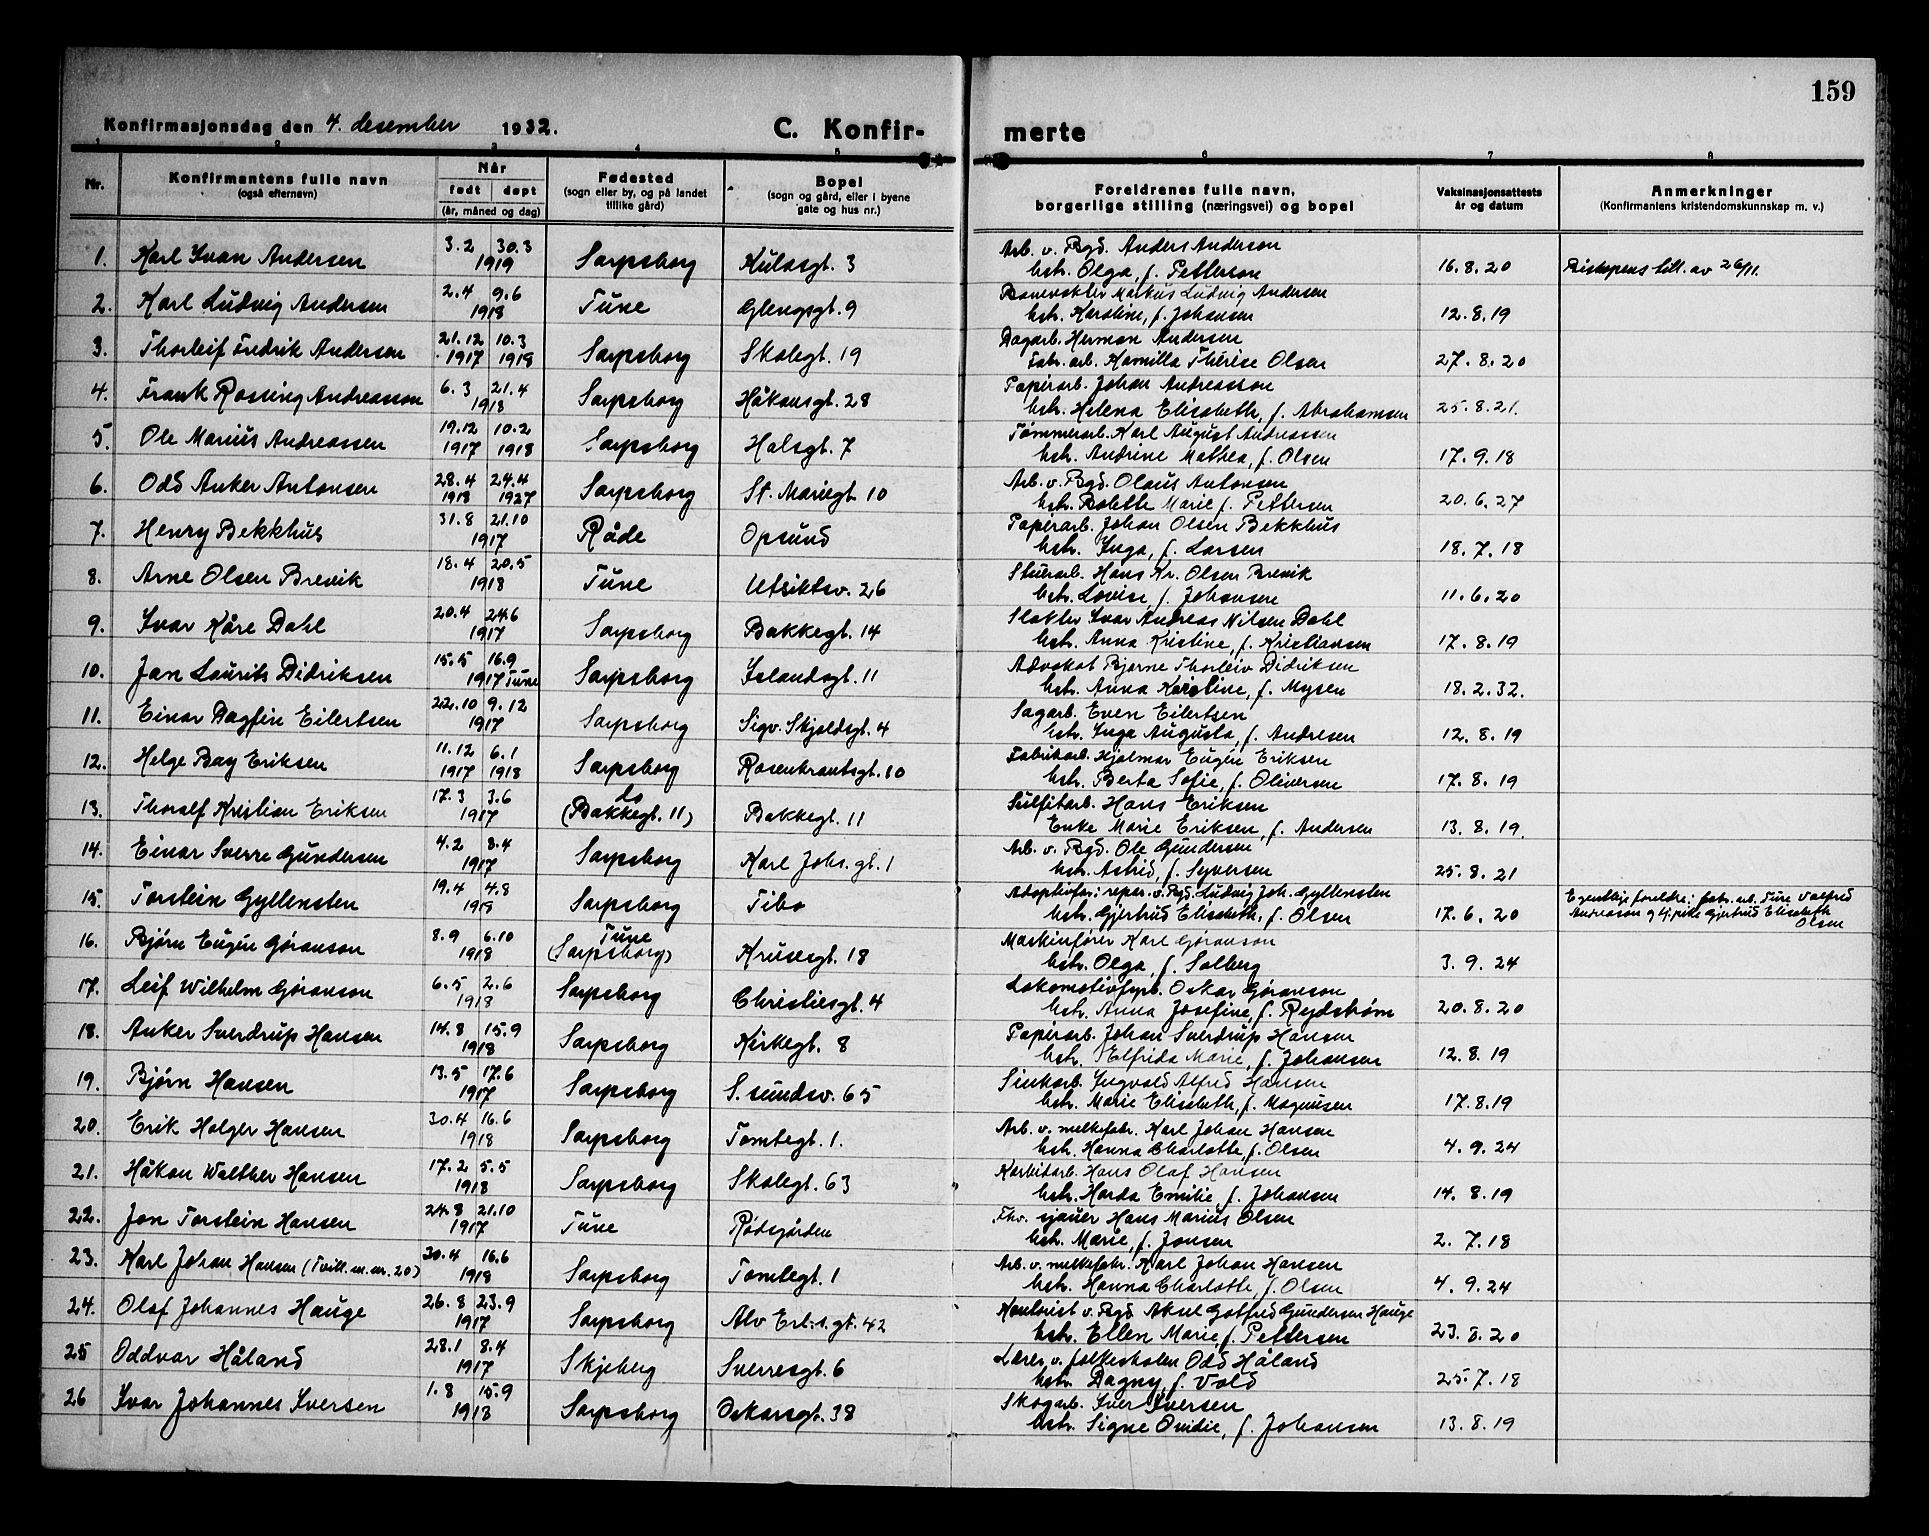 159
Konfirmasjonsdag den 4. desember 1932. C. Konfirmerte
1 2 3 4 5 6 7 8
Nr. Konfirmantens fulle navn (også efternavn) Når født døpt (år, måned og dag) Fødested (sogn eller by, og på landet tillike gård) Bopel (sogn og gård, eller i byene gate og hus nr.) Foreldrenes fulle navn, borgerlige stilling (næringsvei) og bopel Vaksinasjonsattests år og datum Anmerkninger (Konfirmantens kristendomskunnskap m. v.)
1. Karl Ivan Andersen 3.2 30.3 1919 Sarpsborg Kulåsgt. 3 Arb. v. Bgd. Anders Anderson
hstr. Olga, f. Petterson 16.8.20 Biskopens till. av 26/11.
2. Karl Ludvig Andersen 2.4 9.6 1918 Tune Glengsgt. 9 Banevokter Markus Ludvig Andersen
hstr. Karoline, f. Johansen 12.8.19
3. Thorleif Fredrik Andersen 21.12 1917 10.3 1918 Sarpsborg Skolegt. 19 Dagarb. Herman Andersen
Fabr. arb. Kamilla Thérèse Olsen 27.8.20
4. Frank Rossing Andreasson 6.3 21.4 1918 Sarpsborg Håkonsgt. 28 Papirarb. Johan Andreasson
hstr. Helena Elisabeth, f. Abrahamsen 25.8.21.
5. Ole Marius Andreassen 19.12 1917 10.2 1918 Sarpsborg Halsgt. 7 Tømmerarb. Karl August Andreassen
hstr. Andrine Mathea, f. Olsen 17.9.18
6. Odd Anker Antonsen 28.4 1918 24.4 1927 Sarpsborg St. Mariegt. 10 Arb. v. Bgd. Olaus Antonsen
hstr. Bolette Marie f. Pettersen 20.6.27
7. Henry Bekkhus 31.8 21.10 1917 Råde Opsund Papirarb. Johan Olsen Bekkhus
hstr. Inga, f. Larsen 18.7.18
8. Arne Olsen Brevik 18.4 20.5 1918 Tune Utsiktsv. 26 Stuerarb. Hans Kr. Olsen Brevik
hstr. Lovise, f. Johansen 11.6.20
9. Ivar Kåre Dahl 20.4 24.6 1917 Sarpsborg Bakkegt. 14 Slakter Ivar Andreas Nilsen Dahl
hstr. Anna Kristine, f. Kristiansen 17.8.19
10. Jan Laurits Didriksen 15.5 16.9 1917 Tune Sarpsborg Islandsgt. 11 Advokat Bjarne Thorleiv Didriksen
hstr. Anna Karoline, f. Mysen 18.2.32.
11. Einar Dagfin Eilertsen 22.10 9.12 1917 Sarpsborg Sigv. Skjoldsgt. 4 Sagarb. Even Eilertsen
hstr. Inga Augusta, f. Andresen 12.8.19
12. Helge Bay Eriksen 11.12 1917 6.1 1918 Sarpsborg Rosenkrantsgt. 10 Fabrikarb. Hjalmar Eugén Eriksen
hstr. Berta Sofie, f. Oliversen 17.8.19
13. Thoralf Kristian Eriksen 17.3 3.6 1917 do (Bakkegt. 11) Bakkegt. 11 Sulfitarb. Hans Eriksen
Enke Marie Eriksen, f. Andersen 13.8.19.
14. Einar Sverre Gundersen 4.2 8.4 1917 Sarpsborg Karl Johs. gt. 1 Arb. v. Bgd. Ole Gundersen
hstr. Astrid, f. Syversen 25.8.21
15. Torstein Gyllensten 19.4 4.8 1918 Sarpsborg Tibo Adoptivfor.: reper. v. Bgd. Ludvig Joh. Gyllensten
hstr. Gjertrud Elisabeth, f. Olsen 17.6.20 Egentlige foreldre: fabr. arb. Ture Valfrid Andreason og tj. pike Gjertrud Elisabeth Olsen
16. Bjørn Eugén Göranson 8.9 6.10 1918 Tune (Sarpsborg) Krusesgt. 18 Maskinfører Karl Göranson
hstr. Olga, f. Solberg 3.9.24
17. Leif Wilhelm Göranson 6.5 2.6 1918 Sarpsborg Christiesgt. 4 Lokomotivfyrb. Oskar Göranson
hstr. Anna Josefine, f. Rydstrøm 20.8.20
18. Anker Sverdrup Hansen 14.8 15.9 1918 Sarpsborg Kirkegt. 8 Papirarb. Johan Sverdrup Hansen
hstr. Elfrida Marie, f. Johansen 12.8.19
19. Bjørn Hansen 13.5 17.6 1917 Sarpsborg S. sundsv. 65 Sinkarb. Ingvald Alfred Hansen
hstr. Marie Elisabeth, f. Magnusen 17.8.19
20. Erik Holger Hansen 30.4 16.6 1918 Sarpsborg Tomtegt. 1. Arb. v. melkefabr. Karl Johan Hansen
hstr. Hanna Charlotte, f. Olsen 4.9.24
21. Håkon Walther Hansen 17.2 5.5 1918 Sarpsborg Skolegt. 63 Karbidarb. Hans Olaf Hansen
hstr. Harda Emilie, f. Johansen 14.8.19
22. Jon Torstein Hansen 24.8 21.10 1917 Tune Rødsgården Fhv. sjauer Hans Marius Olsen
hstr. Marie, f. Jonsen 2.7.18
23. Karl Johan Hansen (Tvill. m. nr. 20) 30.4 16.6 1918 Sarpsborg Tomtegt. 1 Arb. v. melkefabr. Karl Johan Hansen
hstr. Hanna Charlotte, f. Olsen 4.9.24
24. Olaf Johannes Hauge 26.8 23.9 1917 Sarpsborg Alv Erl.s. gt. 42 Kontorist v. Bgd. Aksel Gotfred Gundersen Hauge
hstr. Ellen Marie, f. Pettersen 23.8.20
25 Oddvar Håland 28.1 8.4 1917 Skjeberg Sverresgt. 6 Lærer v. folkeskolen Odd Håland
hstr. Dagny, f. Vold 25.7.18
26 Ivar Johannes Iversen 1.8 15.9 1918 Sarpsborg Oskarsgt. 38 Skogarb. Iver Iversen
hstr. Signe Ovidie, f. Johansen 13.8.19